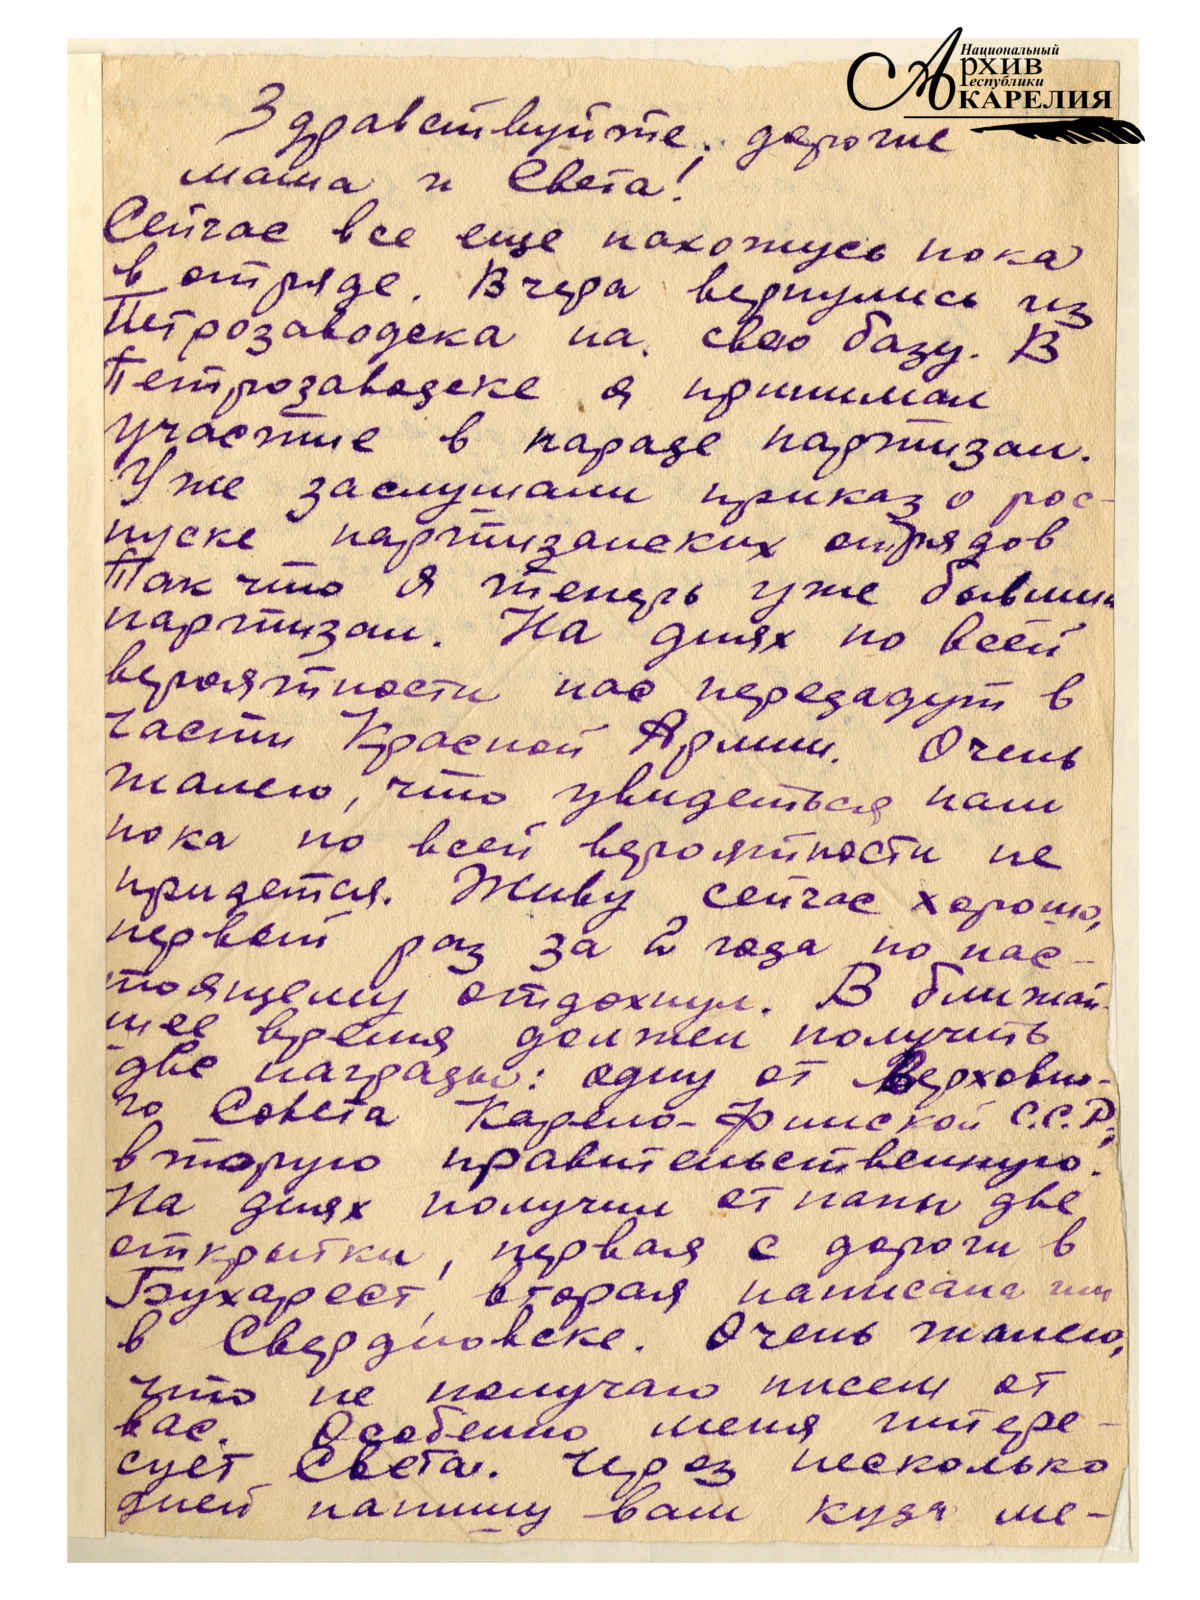 Национальный
Архив
Республики
КАРЕЛИЯ
Здравствуйте, дорогие
мама и Света!
Сейчас все еще нахожусь пока
в отряде. Вчера вернулись из
Петрозаводска на свою базу. В
Петрозаводске я принимал
участие в параде партизан.
Уже заслушали приказ о рос-
пуске партизанских отрядов
Так что я теперь уже бывший
партизан. На днях по всей
вероятности нас передадут в
части Красной Армии. Очень
жалею, что увидеться нам
пока по всей вероятности не
придется. Живу сейчас хорошо,
первый раз за 2 года по нас-
тоящему отдохнул. В ближай-
шее время должен получить
две награды: одну от Верховно-
го Совета Карело-Финской С.С.Р,
вторую правительственную.
На днях получил от папы две
открытки, первая с дороги в
Бухарест, вторая написана им
в Свердловске. Очень жалею,
что не получаю писем от
вас. Особенно меня интере-
сует Света. Через несколько
дней напишу вам куда ме-